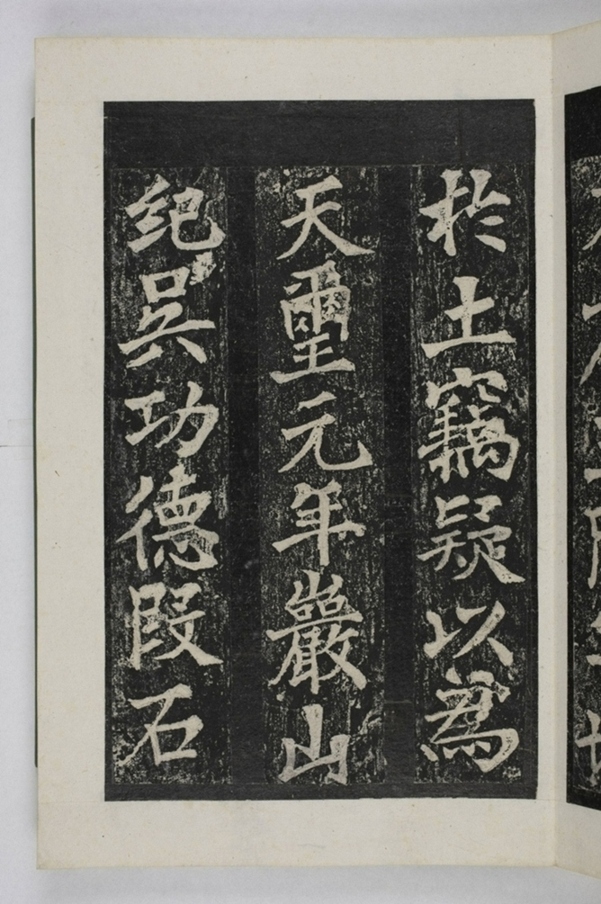 於土竊疑以為
天璽元年巖山
紀吳功德段石